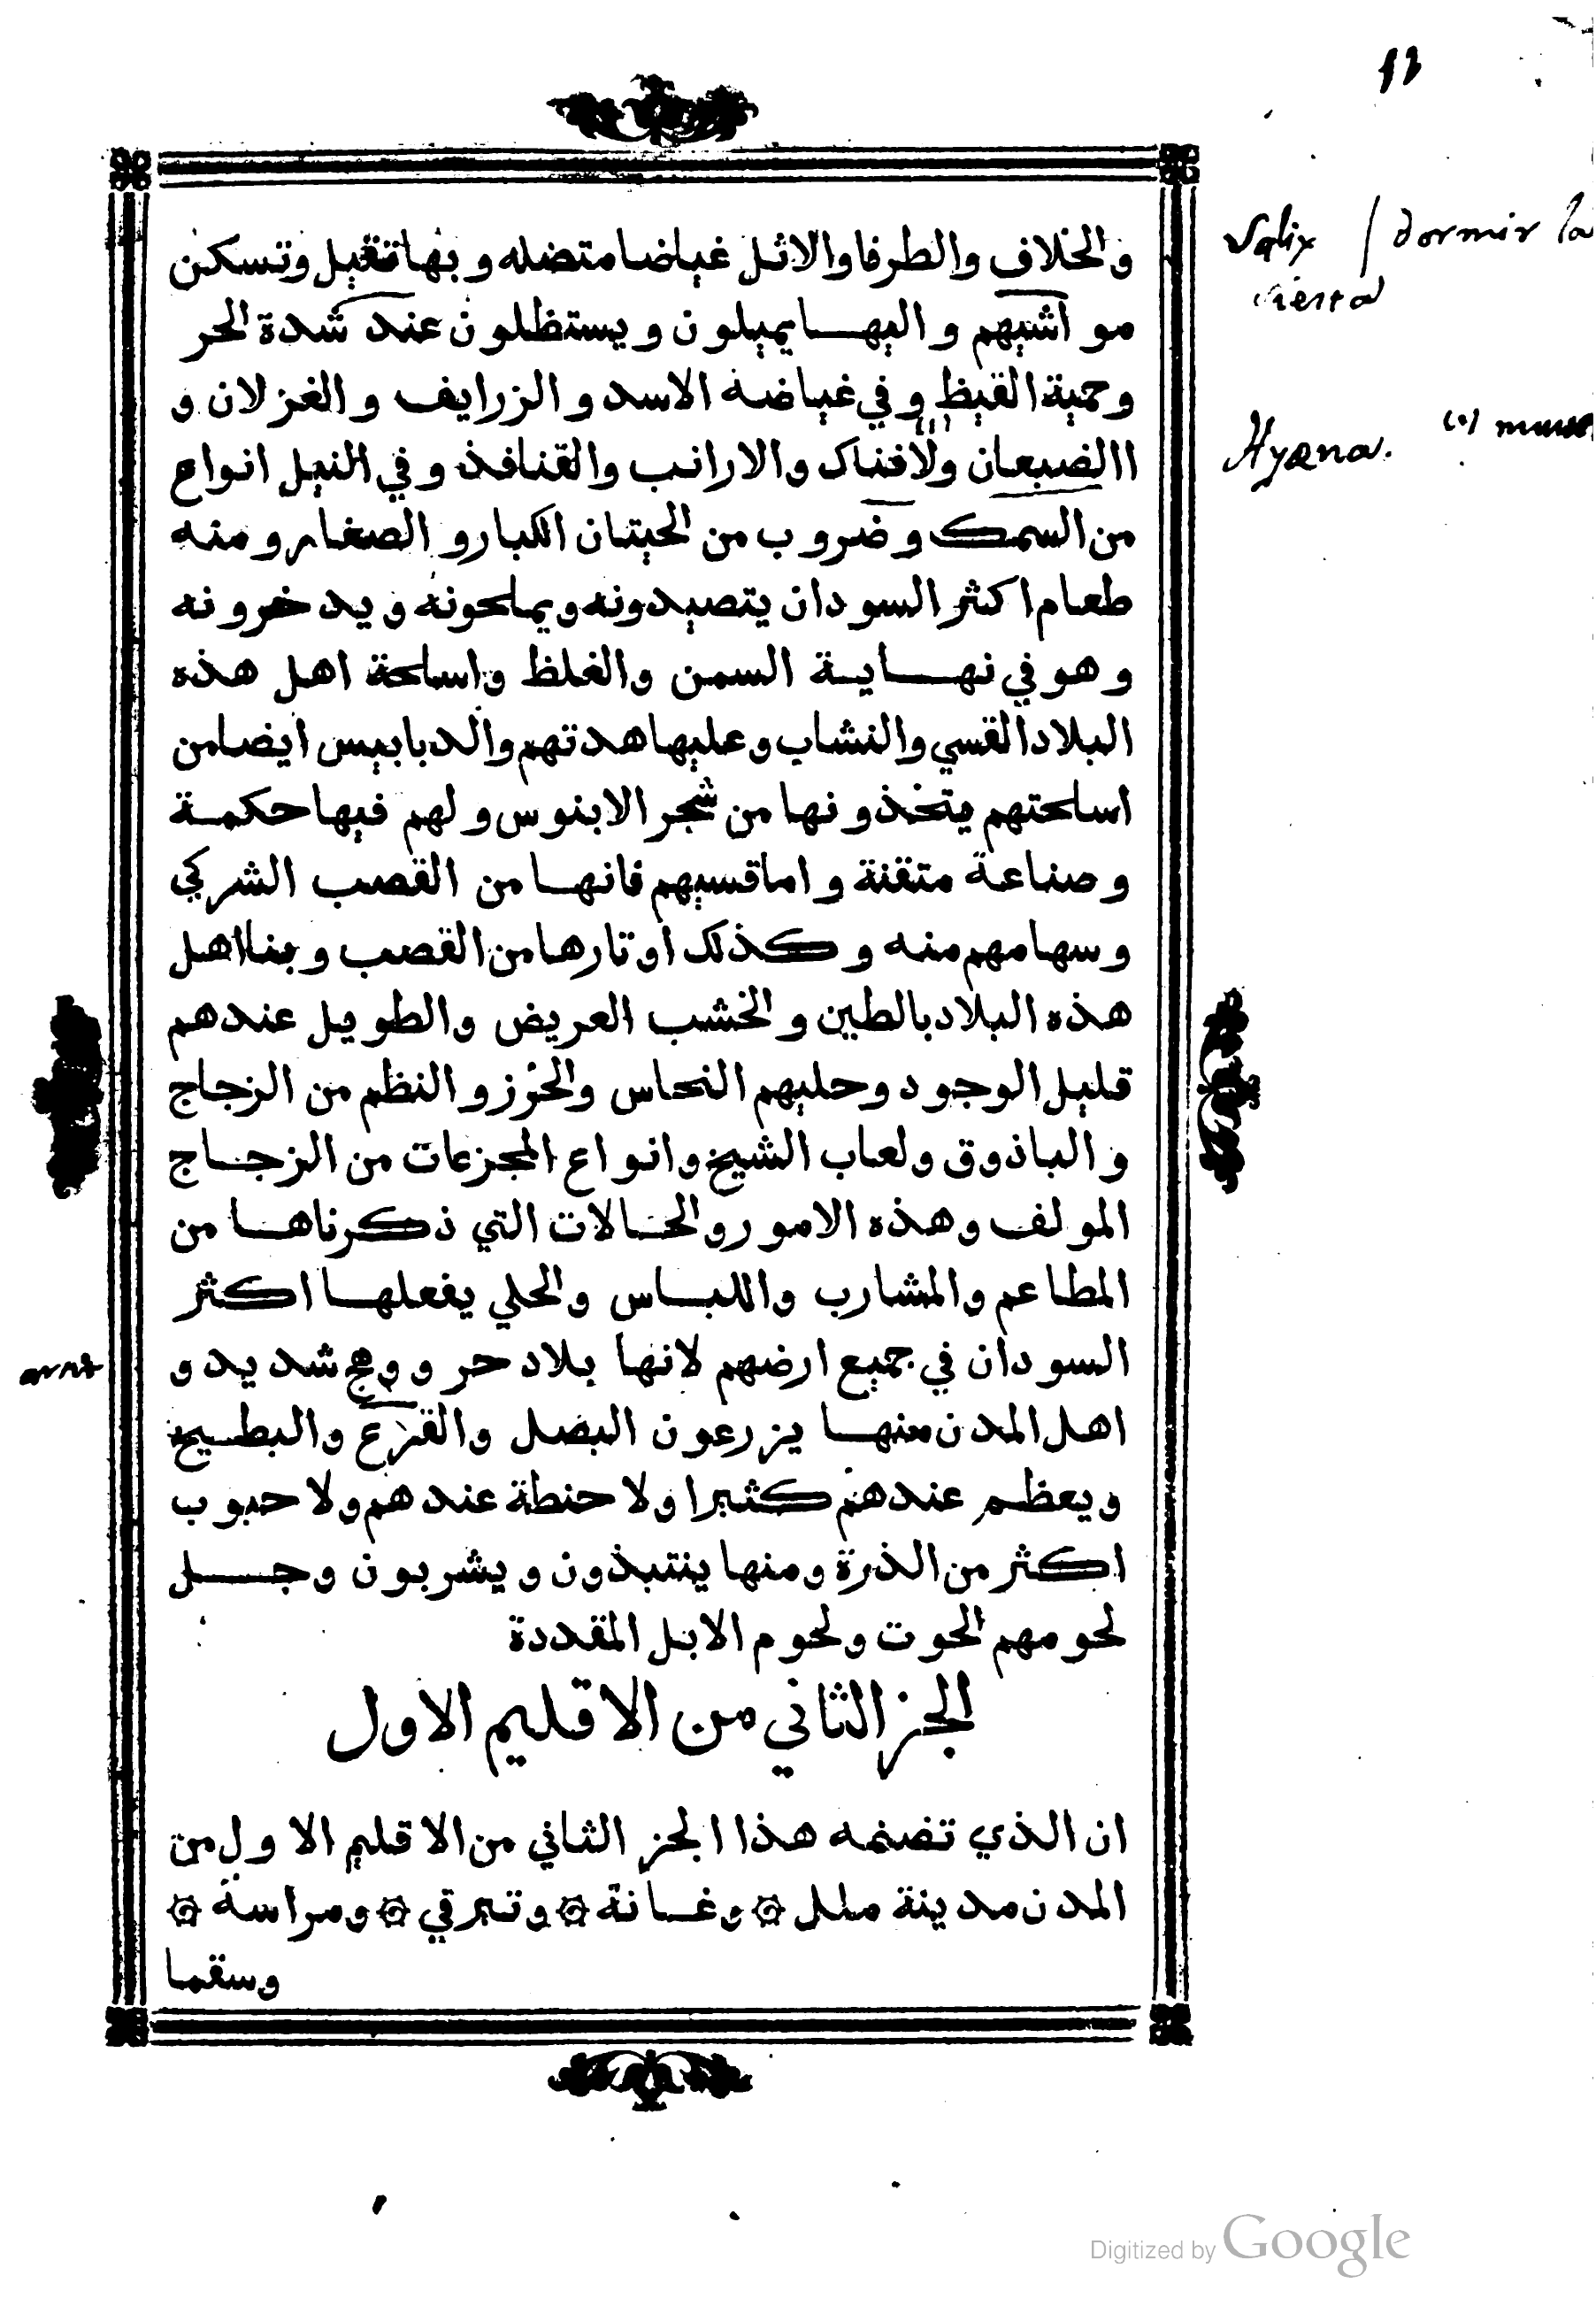 12
والخلاف والطرفا والاثل غياضا متضله وبها تقيل وتسكن
مواشيهم واليها يميلون ويستظلون عند شدة الحر
وحمية القيظ وفي غياضه الاسد والزرايف والغزلان و
االضبعان والافناك والارانب والقنافذ وفي النيل انواع
من السمك وضروب من الحيتان الكبار و الصغار ومنه
طعام اكثر السودان يتصيدونه ويملحونه ويدخرونه
وهو في نهاية السمن والغلظ واسلحة اهل هذه
البلاد القسي والنشاب وعليها هدتهم والدبابيس ايضا من
اسلحتهم يتخذونها من شجر الابنوس ولهم فيها حكمة
وصناعة متقنة واما قسيهم فانها من القصب الشركي
وسهامهم منه وكذلك اوتارها من القصب وبنا اهل
هذه البلاد بالطين والخشب العريض والطويل عندهم
قليل الوجود وحليهم النحاس والخرز والنظم من الزجاج
والباذوق ولعاب الشيخ وانواع المجزعات من الزجاج
المولف وهذه الامور والحالات التي ذكرناها من
المطاعم والمشارب واللباس والحلي يفعلها اكثر
السودان في جميع ارضهم لانها بلاد حر ووهج شديد و
اهل المدن منها يزرعون البصل والقرع والبطيخ
ويعظم عندهم كثيرا ولا حنطة عندهم ولا حبوب
اكثر من الذرة ومنها ينتبذون ويشربون وجل
لحومهم الحوت ولحوم الابل المقددة
الجز الثاني من الاقليم الاول
ان الذي تضمنه هذا الجز الثاني من الاقليم الاول من
المدن مدينة ملل ۞ وغانة ۞ وتيرقي ۞ ومراسة ۞
وسقما
Salix / dormir la
siesta
Hyæna.
Digitized by Google